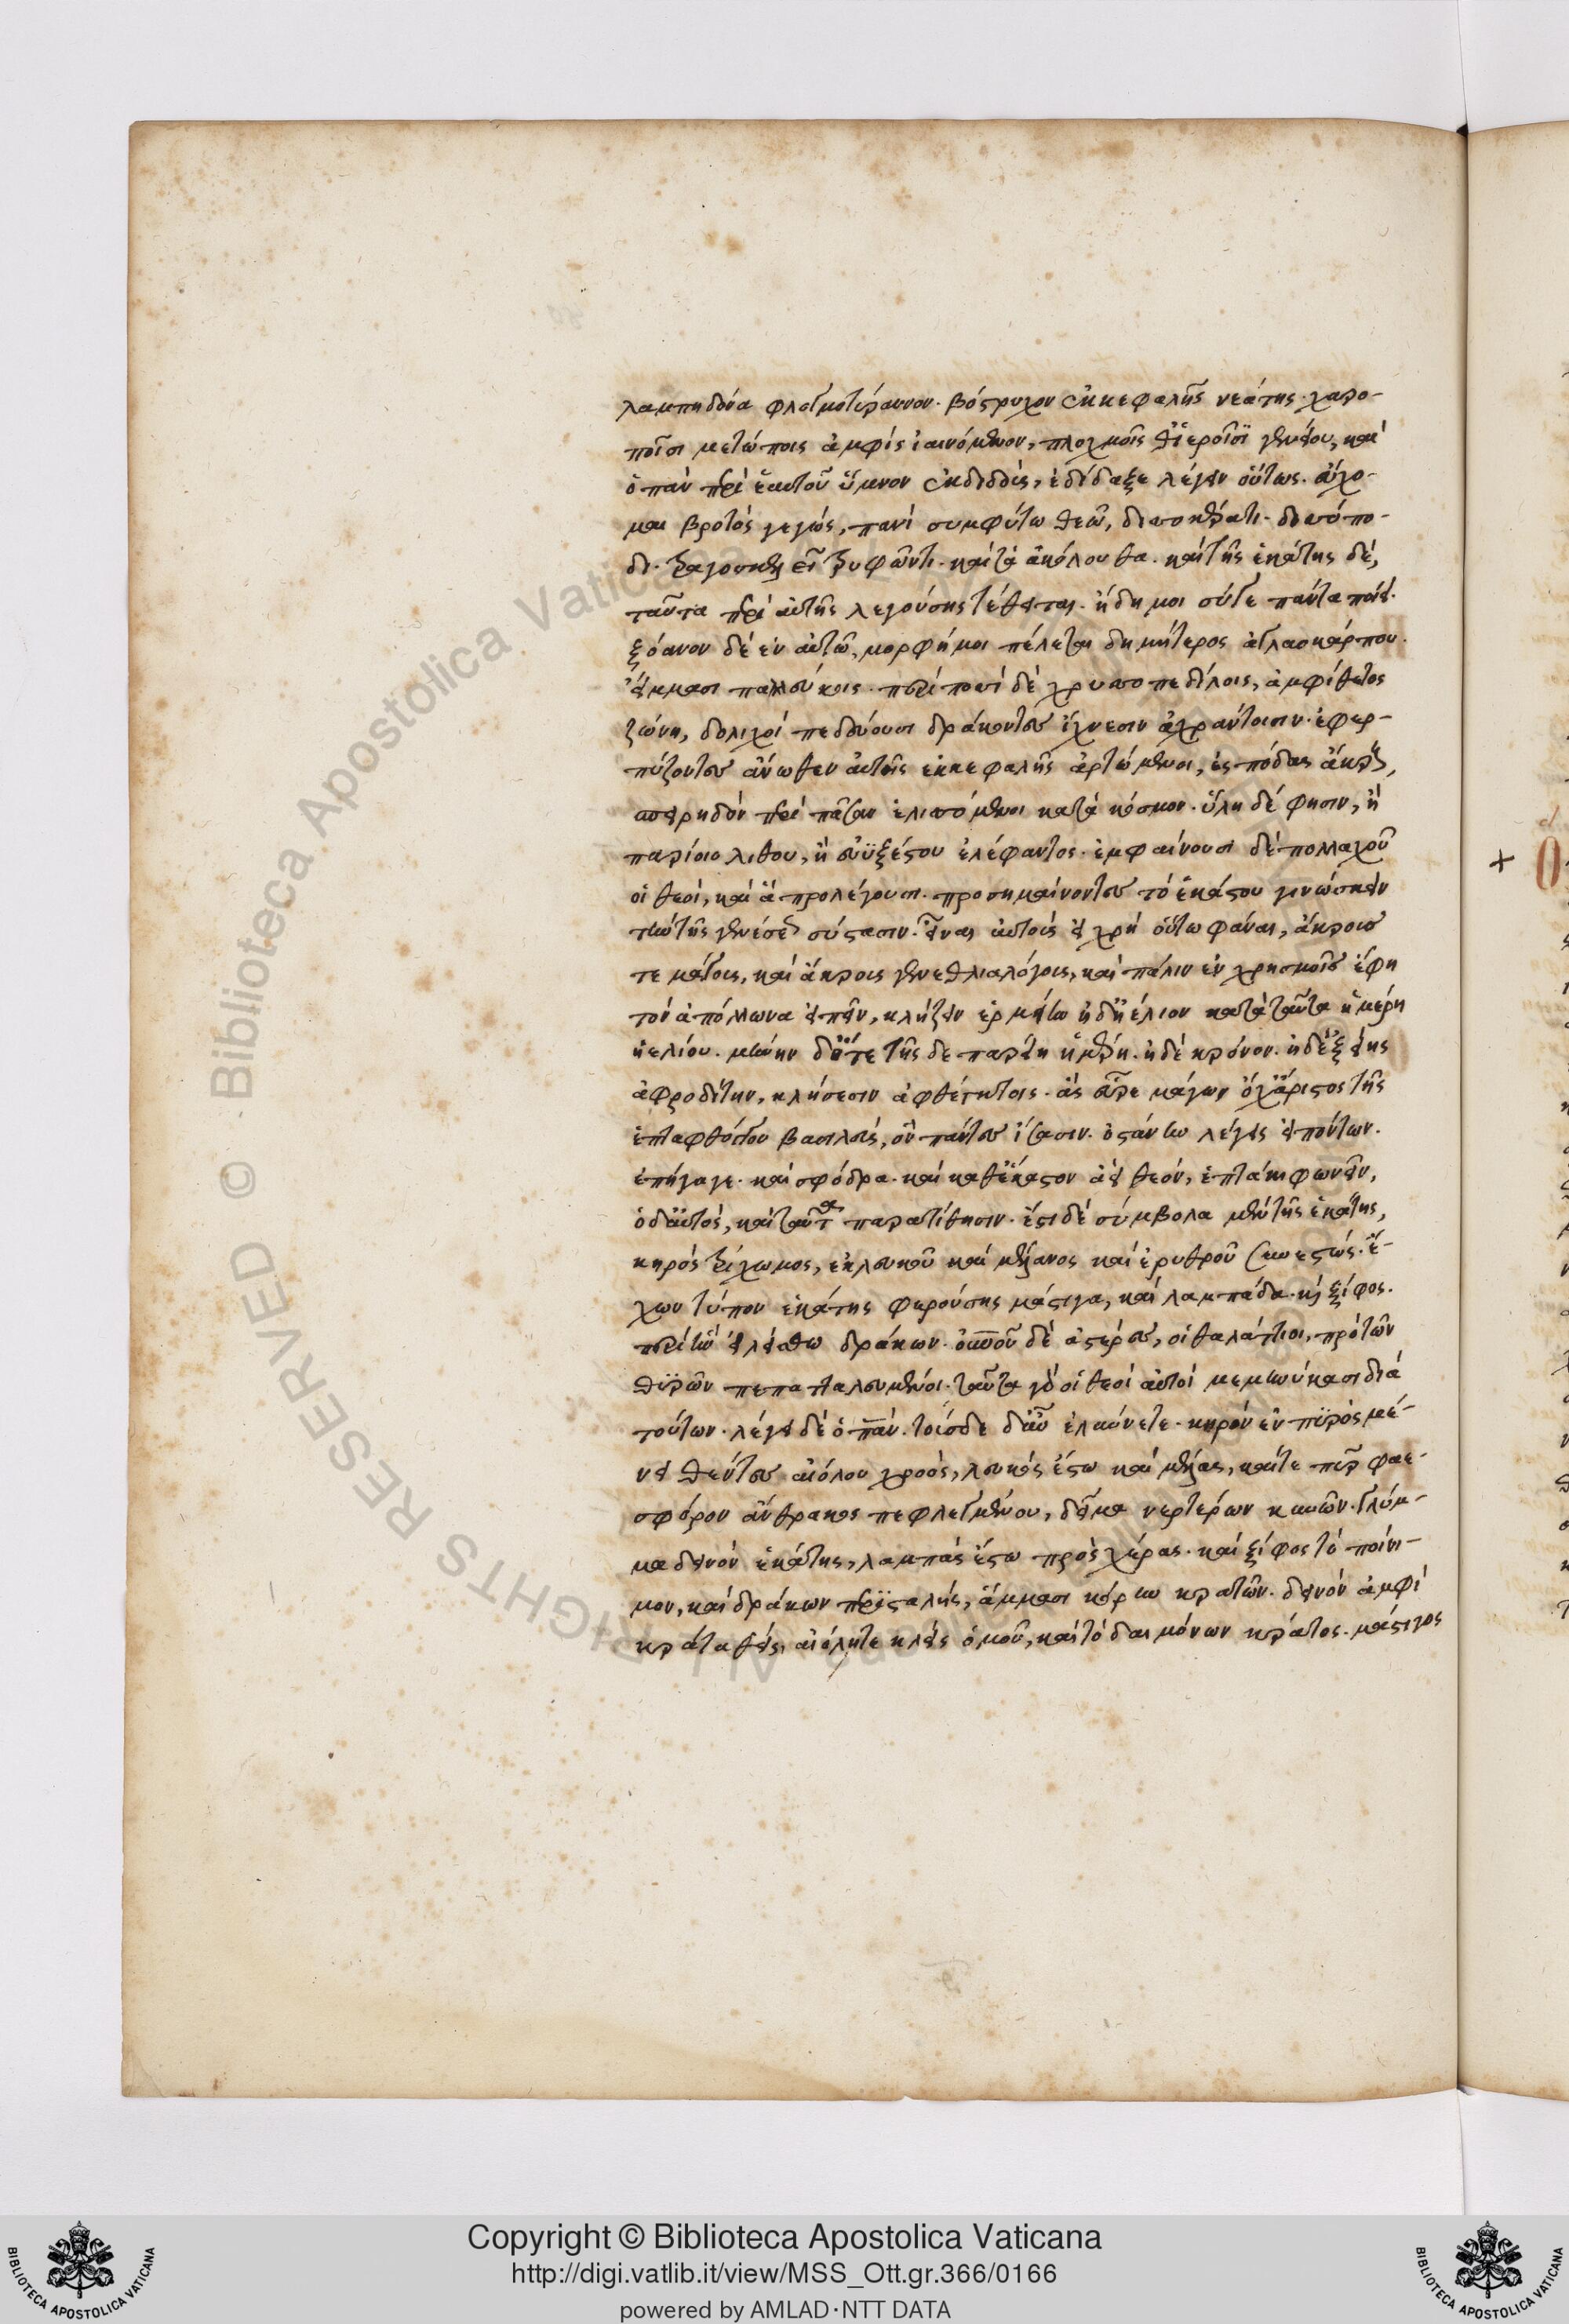 λαμπηδόνα φλογμοτύραννον. βόστρυχον ἐκ κεφαλῆς νεάτης. χαρο-
ποῖσι μετώποις ἀμφὶς ἰαινόμενον, πλοχμοῖς θ' ἱεροῖσι γενείου, καὶ
ὁ πὰν περὶ ἑαυτοῦ ὕμνον ἐκδιδοὺς, ἐδίδαξε λέγειν οὕτως. εὔχο-
μαι βροτὸς γεγώς, πανὶ συμφύτω θεῶ, δισσοκέρατι. δισσόπο-
δι. τραγοσκελεῖ τρυφῶντι. καὶ τὰ ἀκόλουθα. καὶ τῆς ἑκάτης δὲ,
ταῦτα περὶ αὐτῆς λεγούσης τέθειται. ἤδη μοι σύγε πάντα ποίει.
ξόανον δὲ ἐν αὐτῶ, μορφή μοι πέλεται δημήτερος ἀγλαοκάρπου.
εἵμασι παλλεύκοις. περὶ ποσὶ δὲ χρυσοπεδίλοις, ἀμφὶ θετος
ζώνη, δολιχοὶ πεδδύουσι δράκοντες ἴχνεσιν ἀχράντοισιν. ἐφερ-
πύζοντες ἄνωθεν αὐτῆς ἐκ κεφαλῆς ἀρτώμενοι, ἐς πόδας ἄκρους,
σπειρηδὸν περὶ πᾶσαν ἑλισσόμενοι κατὰ κόσμον. ὕλη δέ φησιν, ἢ
παρίοιο λίθου, ἢ εὐξέστου ἐλέφαντος. ἐμφαίνουσι δὲ πολλαχοῦ
οἱ θεοὶ, καὶ ἃ προλέγουσι. προσημαίνοντες τὸ ἑκάστου γινώσκειν
τὴν τῆς γενέσεως σύστασιν. εἶναι αὐτοὺς εἰ χρὴ οὕτω φάναι, ἄκρους
τε μάγους, καὶ ἄκρους γενεθλιαλόγους, καὶ πάλιν ἐν χρησμοῖς ἔφη
τὸν ἀπόλλωνα εἰπεῖν, κλήζειν ἑρμῆν ἠδ' ἠέλιον κατὰ ταῦτα ἡμέρη
ἠελίου. μήνην δ' ὅτε τῆσδε παρείη ἡμέρη. ἠδὲ κρόνον. ἠδ' ἑξείης
ἀφροδίτην, κλήσεσιν ἀφθέγκτοις. ἃς εὗρε μάγων ὄχ' ἄριστος τῆς
ἑπταφθόγγου βασιλεὺς, ὃν πάντες ἴσασιν. ὀστάνην λέγεις εἰπόντων.
ἐπήγαγε. καὶ σφόδρα. καὶ καθ' ἕκαστον ἀεὶ θεὸν, ἑπτάκι φωνεῖν,
ὁ δ' αὐτὸς, καὶ ταῦτα παρατίθησιν. ἔστι δὲ σύμβολα μὲν τῆς ἑκάτης,
κηρὸς τρίχωμος, ἐκ λευκοῦ καὶ μέλανος καὶ ἐρυθροῦ συνεστώς. ἔ-
χων τύπον ἑκάτης φερούσης μάστιγα, καὶ λαμπάδα. καὶ ξίφος.
περὶ ἣν εἰλείσθω δράκων. οὐρανοῦ δὲ ἀστέρες, οἱ θαλάττιοι, πρὸ τῶν
θυρῶν πεπατταλευμένοι. ταῦτα γὰρ οἱ θεοὶ αὐτοὶ μεμηνύκασι διὰ
τούτων. λέγει δὲ ὁ πάν. τούσδε δ' αὖ ἐλαύνετε. κηρὸν ἐν πυρὸς μέ-
νει θέντες αἰόλου χροὸς, λευκὸς ἔστω καὶ μέλας, καί τε πυρ φαε-
σφόρον ἄνθρακος πεφλεγμένου, δεῖμα νερτέρων κυνῶν. γλύμ-
μα δεινὸν ἑκάτης, λαμπὰς ἔστω πρὸς χέρας. καὶ ξίφος τὸ ποίνι-
μον, καὶ δράκων περισταλὴς, ἅμμασι κόρην κρατῶν. δεινὸν ἀμφὶ
κρᾶτα θείς, αἰόλη τε κλεὶς ὁμοῦ, καὶ τὸ δαιμόνων κράτος. μάστιγος
Copyright © Biblioteca Apostolica Vaticana
http://digi.vatlib.it/view/MSS_Ott.gr.366/0166
powered by AMLAD·NTT DATA